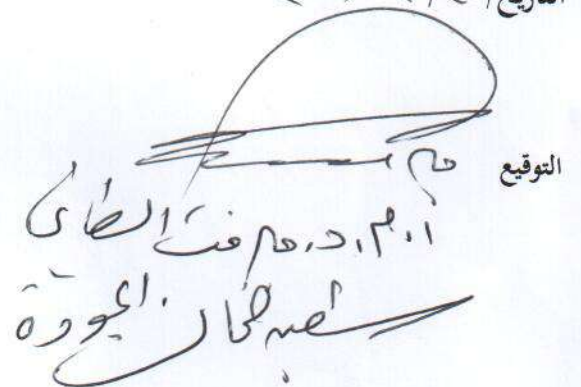 التاريخ
التوقيع
أ.م.د. مرفت الطائي
شعبة ضمان الجودة